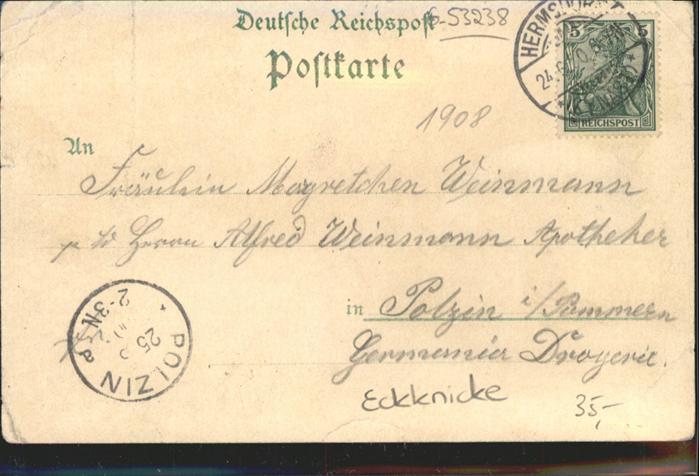 Deutsche Reichspost
-53238
Postkarte
5 5
REICHSPOST
HERMSDORF
24.
1908
An
Fräulein Magretchen Weinmann
Herrn Alfred Weinmann Apotheker
in Polzin i/Pommern
Germania Drogerie.
POLZIN
25
2-3N
a
Eckknicke
35,-